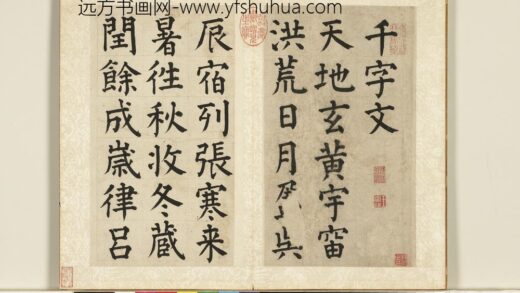 远方书画网-www.yfshuhua.com
千字文
天地玄黄宇宙
洪荒日月
辰宿列張寒来
暑徃秋收冬藏
閏餘成嵗律呂